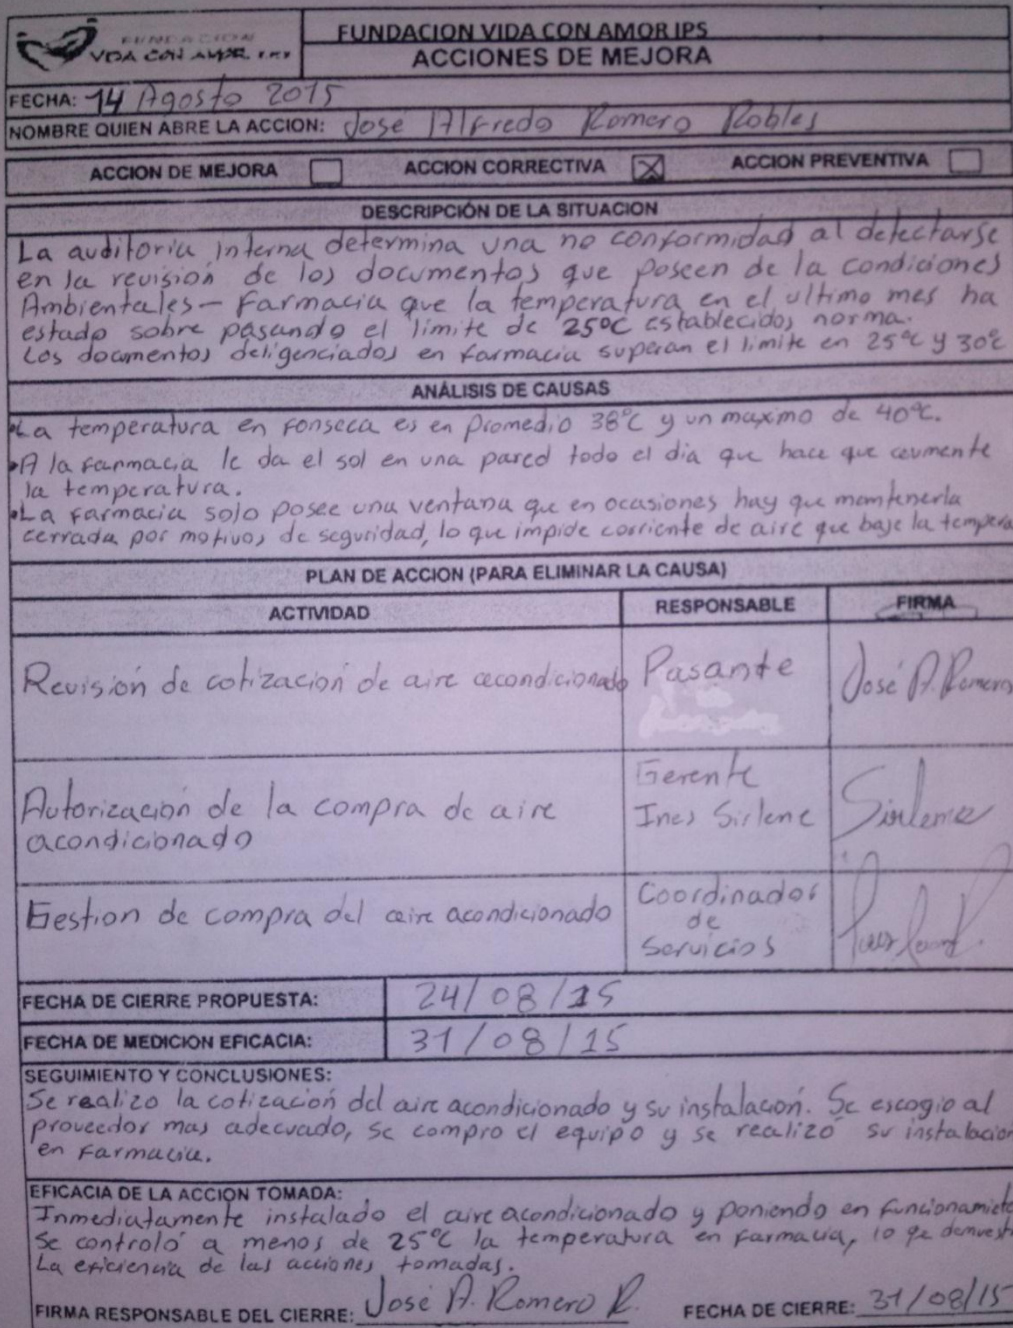 FUNDACION
VIDA CON AMOR IPS
FUNDACION VIDA CON AMOR IPS
ACCIONES DE MEJORA
FECHA: 14 Agosto 2015
NOMBRE QUIEN ABRE LA ACCION: José Alfredo Romero Robles
ACCION DE MEJORA ACCION CORRECTIVA X ACCION PREVENTIVA
DESCRIPCIÓN DE LA SITUACION
La auditoria interna determina una no conformidad al detectarse
en la revisión de los documentos que poseen de la condiciones
Ambientales - Farmacia que la temperatura en el ultimo mes ha
estado sobre pasando el limite de 25°C establecidos norma.
Los documentos deligenciados en farmacia superan el limite en 25°C y 30°C
ANÁLISIS DE CAUSAS
•La temperatura en Fonseca es en promedio 38°C y un maximo de 40°C.
•A la farmacia le da el sol en una pared todo el dia que hace que aumente
la temperatura.
•La farmacia solo posee una ventana que en ocasiones hay que mantenerla
cerrada por motivos de seguridad, lo que impide corriente de aire que baje la tempera
PLAN DE ACCION (PARA ELIMINAR LA CAUSA)
ACTIVIDAD RESPONSABLE FIRMA
Revisión de cotización de aire acondicionado Pasante José A. Romero
Autorización de la compra de aire
acondicionado
Gerente
Ines Sirlene
Sirlene
Gestion de compra del aire acondicionado
Coordinador
de
Servicios
FECHA DE CIERRE PROPUESTA: 24/08/15
FECHA DE MEDICION EFICACIA: 31/08/15
SEGUIMIENTO Y CONCLUSIONES:
Se realizo la cotizacion del aire acondicionado y su instalación. Se escogio al
proveedor mas adecuado, se compro el equipo y se realizó su instalacion
en Farmacia.
EFICACIA DE LA ACCION TOMADA:
Inmediatamente instalado el aire acondicionado y poniendo en funcionamieto
Se controló a menos de 25°C la temperatura en farmacia, lo qe demuest
La eficiencia de las acciones tomadas.
FIRMA RESPONSABLE DEL CIERRE: José A. Romero R. FECHA DE CIERRE: 31/08/15